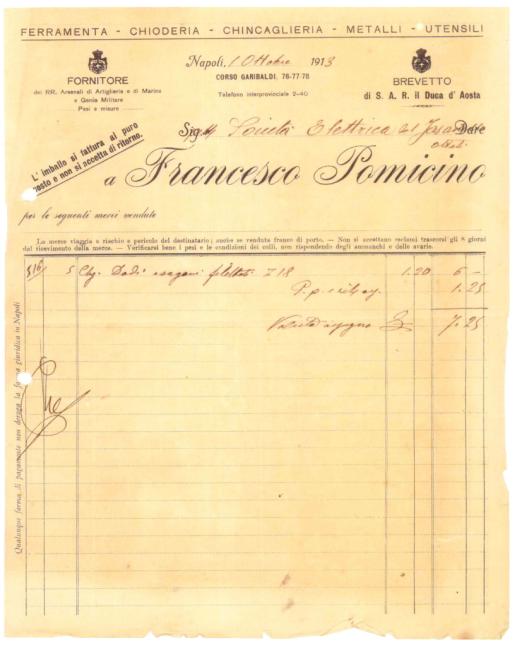 FERRAMENTA - CHIODERIA - CHINCAGLIERIA - METALLI - UTENSILI
Napoli, 1 Ottobre 1913
CORSO GARIBALDI, 76-77-78
Telefono interprovinciale 2-40
FORNITORE
dei RR. Arsenali di Artiglieria e di Marina
e Genio Militare
Pesi e misure
BREVETTO
di S. A. R. il Duca d' Aosta
L' imballo si fattura al puro
costo e non si accetta di ritorno.
Sig. Società Elettrica del Dare
a Francesco Pomicino
per le seguenti merci vendute
La merce viaggia a rischio e pericolo del destinatario; anche se venduta franco di porto. — Non si accettano reclami trascorsi gli 8 giorni
dal ricevimento della merce. — Verificarsi bene i pesi e le condizioni dei colli, non rispondendo degli ammanchi e delle avarie.
516 5 Chg. Dadi esagoni filettati 1.20 6 —
P. p. 1.25
7.25
Qualunque forma di pagamento non deroga la forma giuridica in Napoli